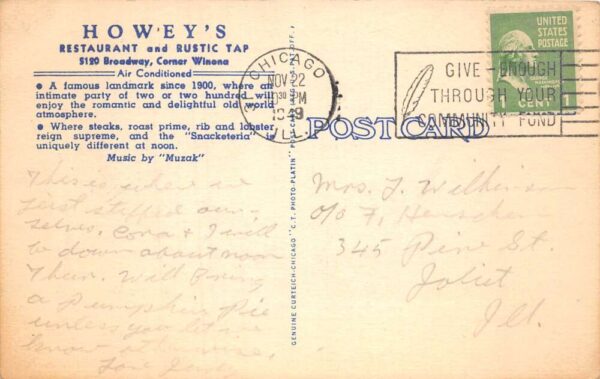 HOWEY'S
RESTAURANT and RUSTIC TAP
5120 Broadway, Corner Winona
Air Conditioned
• A famous landmark since 1900, where an
intimate party of two or two hundred will
enjoy the romantic and delightful old world
atmosphere.
• Where steaks, roast prime, rib and lobster
reign supreme, and the "Snacketeria" is
uniquely different at noon.
Music by "Muzak"
This is where we
just stuffed our-
selves, Cora & I will
be down about noon
Thur. Will Bring
a Pumpkin Pie
unless you let us
know otherwise,
Love
GENUINE CURTEICH-CHICAGO "C.T. PHOTO-PLATIN" POST CARD
POST CARD
CHICAGO
NOV 22
PM
ILL.
GIVE ENOUGH
THROUGH YOUR
COMMUNITY FUND
UNITED
STATES
POSTAGE
CENT 1
Mrs. J. Wilkinson
c/o F.
345 Pine St.
Joliet
Ill.